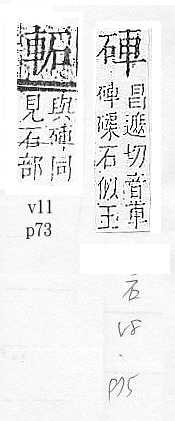 硨
昌遮切音車
硨磲石似玉
𨋢
與硨同
見石部
v11
p73
石
v8
.
p75